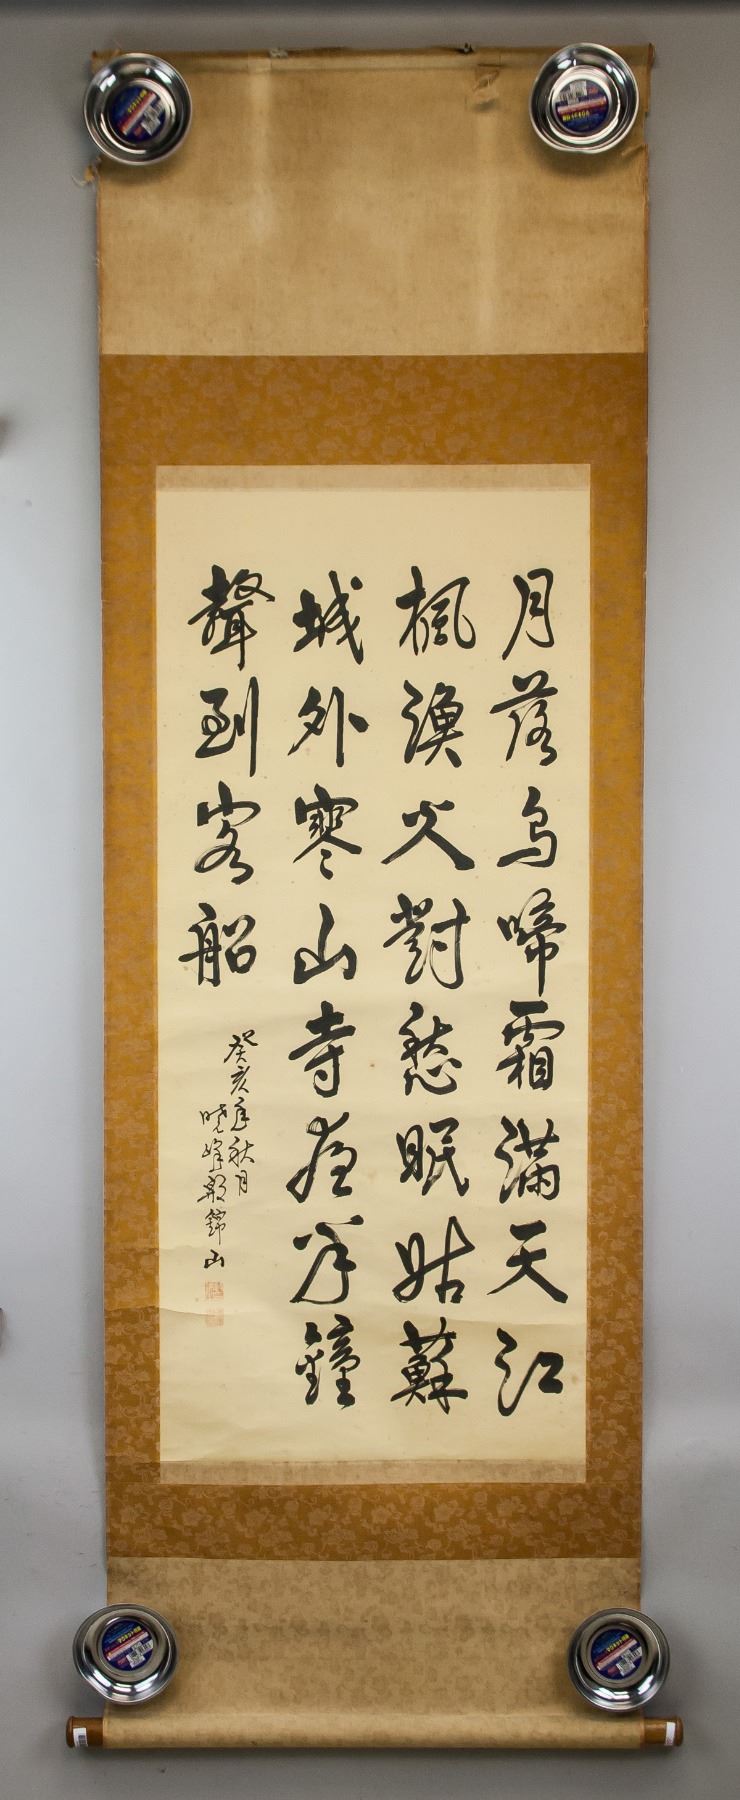 月落烏啼霜滿天江
楓漁火對愁眠姑蘇
城外寒山寺夜半鐘
聲到客船
癸亥年秋月
曉峰鄭錦山